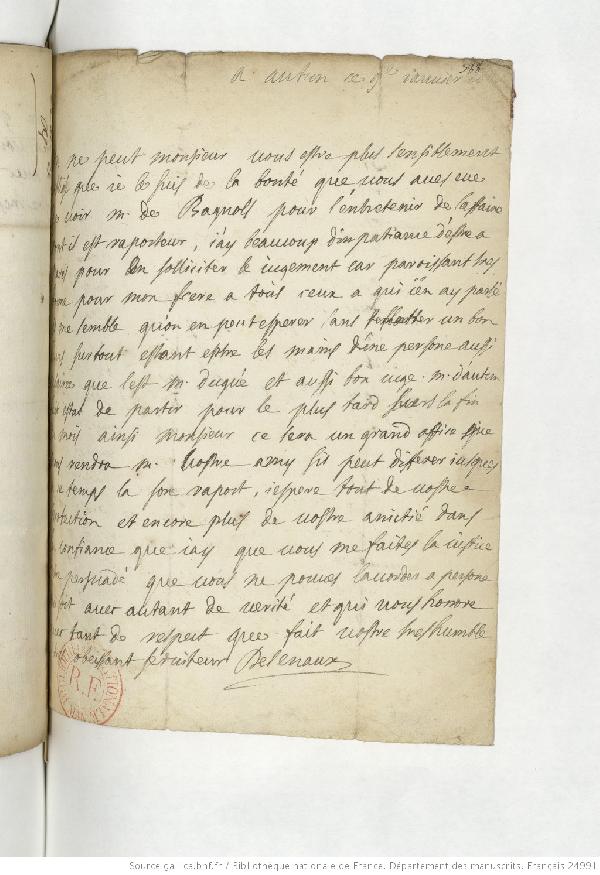 a autun ce 9e ianuier
ne peut monsieur vous estre plus sensiblement
que ie le suis de la bonté que vous aues eue
voir m. de Bagnols pour l'entretenir de laffaire
il est raporteur, i'ay beaucoup d'impatiance d'estre a
pour en solliciter le iugement car paroissant tres
pour mon frere a tous ceux a qui i'en ay parlé
me semble qu'on en peut esperer sans se flatter un bon
surtout estant entre les mains d'une persone aussi
que l'est m. dugué et aussi bon iuge. m. d'autun
de partir pour le plus tard vers la fin
mois ainsi monsieur ce sera un grand office que
rendra m. vostre amy sil peut diferer iusques
ce temps la son raport, i'espere tout de vostre
et encore plus de vostre amitié dans
confiance que iay que vous me faites la iustice
persuadé que vous ne pouues lacorder a persone
auec autant de verité et qui vous honore
tant de respect que fait vostre tres humble
obeissant seruiteur Delenaux
R.F.
Source gallica.bnf.fr / Bibliothèque nationale de France. Département des manuscrits. Français 24991